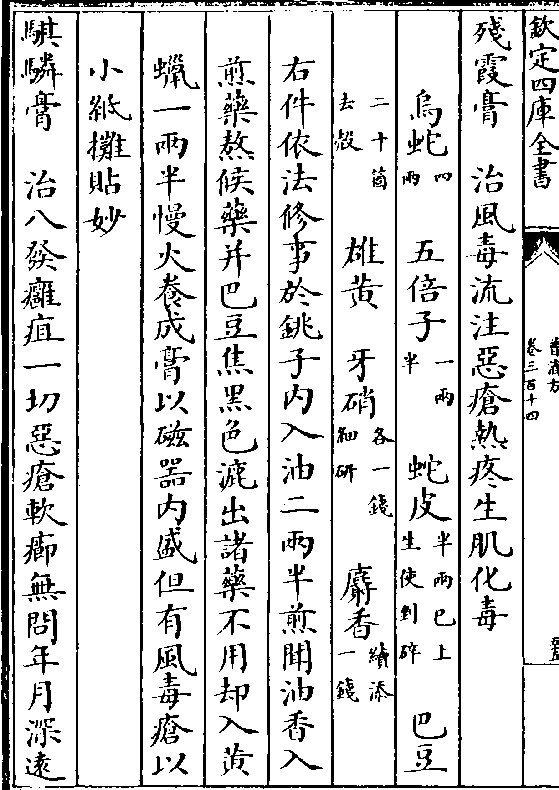 欽定四庫全書
普濟方
卷三百十四
殘霞膏　治風毒流注惡瘡熱疼生肌化毒
烏蛇四兩　五倍子一兩半　蛇皮半兩已上生使剉碎　巴豆
二十箇去殼　雄黄　牙硝各一錢細研　麝香續添一錢
右件依法修事於銚子内入油二兩半煎聞油香入
煎藥熬候藥并巴豆焦黑色漉出諸藥不用却入黄
蠟一兩半慢火養成膏以磁器内盛但有風毒瘡以
小紙攤貼妙
騏驎膏　治八發癰疽一切惡瘡軟癤無問年月深遠